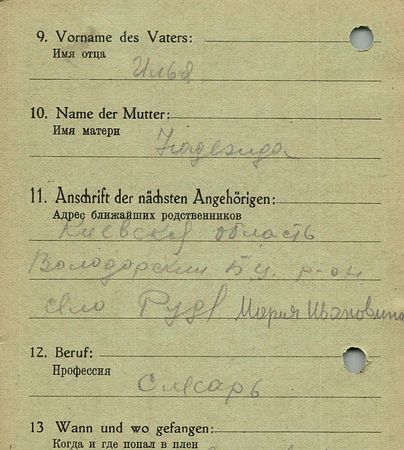 9. Vorname des Vaters:
Имя отца
Илья
10. Name der Mutter:
Имя матери
Надежда
11. Anschrift der nächsten Angehörigen:
Адрес ближайших родственников
Киевская область
Володарский р-он
село Руда Мария Ивановна
12. Beruf:
Профессия
Слесарь
13 Wann und wo gefangen:
Когда и где попал в плен